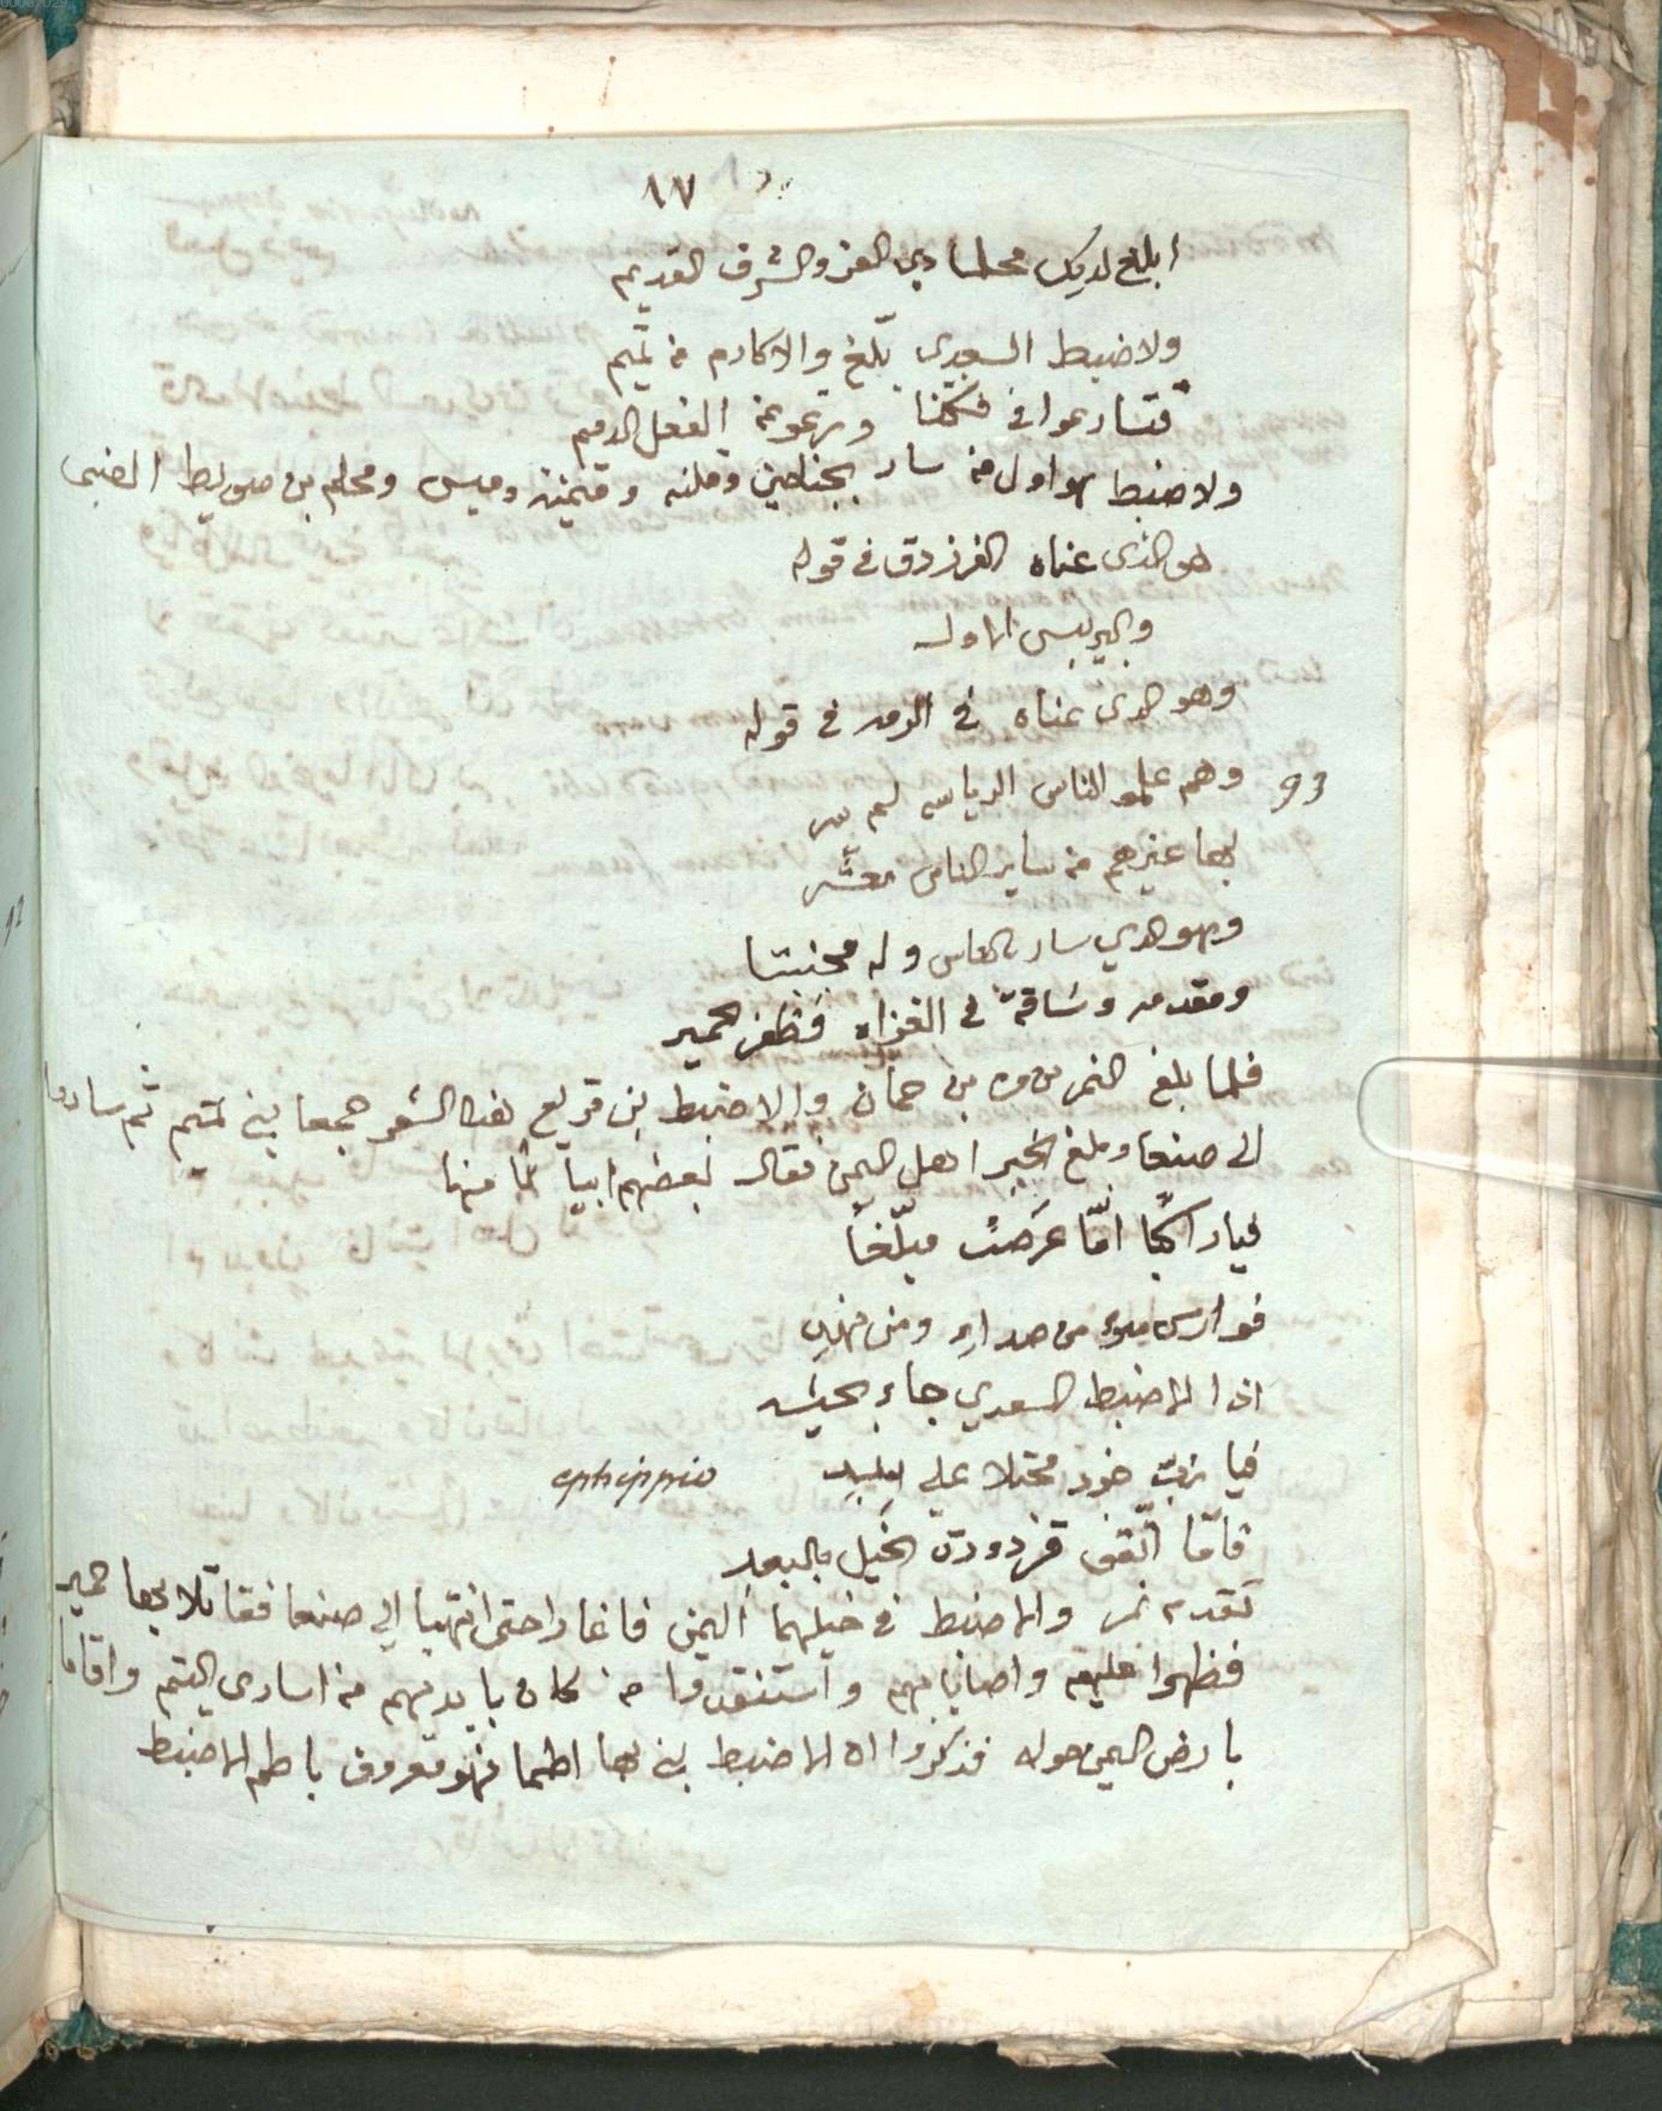 ١٧
ابلغ لديك محلما ذي العز والشرف القديم
ولاضبط السعدى بلّغ والاكارم من تميم
فتسارعوا في فكّنا وترعو عن الفعل الدميم
ولاضبط هو اول من سار بجناحين وقلنه وقيمنة وميس ومحلم بن صويط الضبى
هو الذى عناه الفرزدق في قوله
والريس الاول
وهو الذى عناه في الرمه في قوله
93 وهم علمو الناس الرياسه لم يسر
بها غيرهم من ساير الناس معشر
وهو الذي سار بالناس وله مجنبتا
ومقدمه وساقة في الغزاه فظفر بحمير
فلما بلغ النمر بن مره بن حمان والاضبط بن قريع هذا الشعر جمعا بني تميم ثم سارا
الى صنعا وبلغ الخبر اهل اليمن فقال بعضهم ابياتا منها
فيا راكبًا امّا عَرَضتَ مبلّغًا
فوارس من صداءِ ومن نهدِ
اذا الاضبط السعدي جاء بجيشه
فيا ربّ خود محتلا على لبد ephippio
فامّا اتّقوا الخيل بالبعدِ
تقدم نمر والاضبط في خيلهما اليمن فاغارا حتى انتهيا الى صنعا فقاتلا بها حمير
فظهرا عليهم واصابا منهم واستنقدوا من كان بايديهم من اسارى التيم واقاما
بارض اليمن حوله فذكروا ان الاضبط بنى بها اطما فهو معروف باطم الاضبط